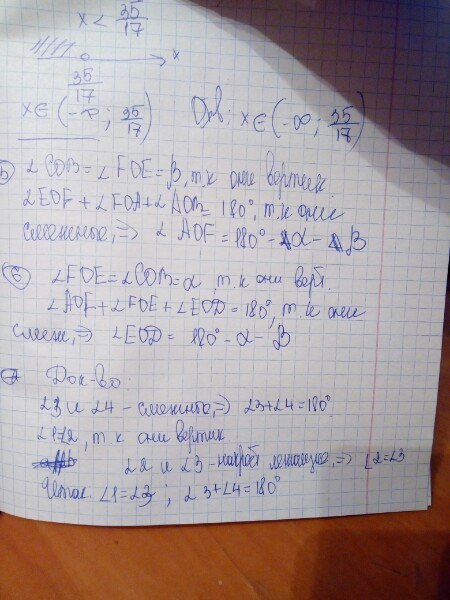 x < 35/17
x
35/17
x ∈ (-∞; 35/17) Отв: x ∈ (-∞; 35/17)
5) ∠COB = ∠FOE = β, т.к они вертик
∠EOF + ∠FOA + ∠AOB = 180°, т.к они
смежные, ⇒ ∠AOF = 180° - α - β
6) ∠FOE = ∠COB = α, т.к они верт.
∠AOF + ∠FOE + ∠EOD = 180°, т.к они
смеж, ⇒ ∠EOD = 180° - α - β
7 Док-во:
∠3 и ∠4 - смежные, ⇒ ∠3+∠4=180°
∠1=∠2, т к они вертик
∠2 и ∠3 - накрест лежащие, ⇒ ∠2=∠3
Итак ∠1=∠3; ∠3+∠4=180°